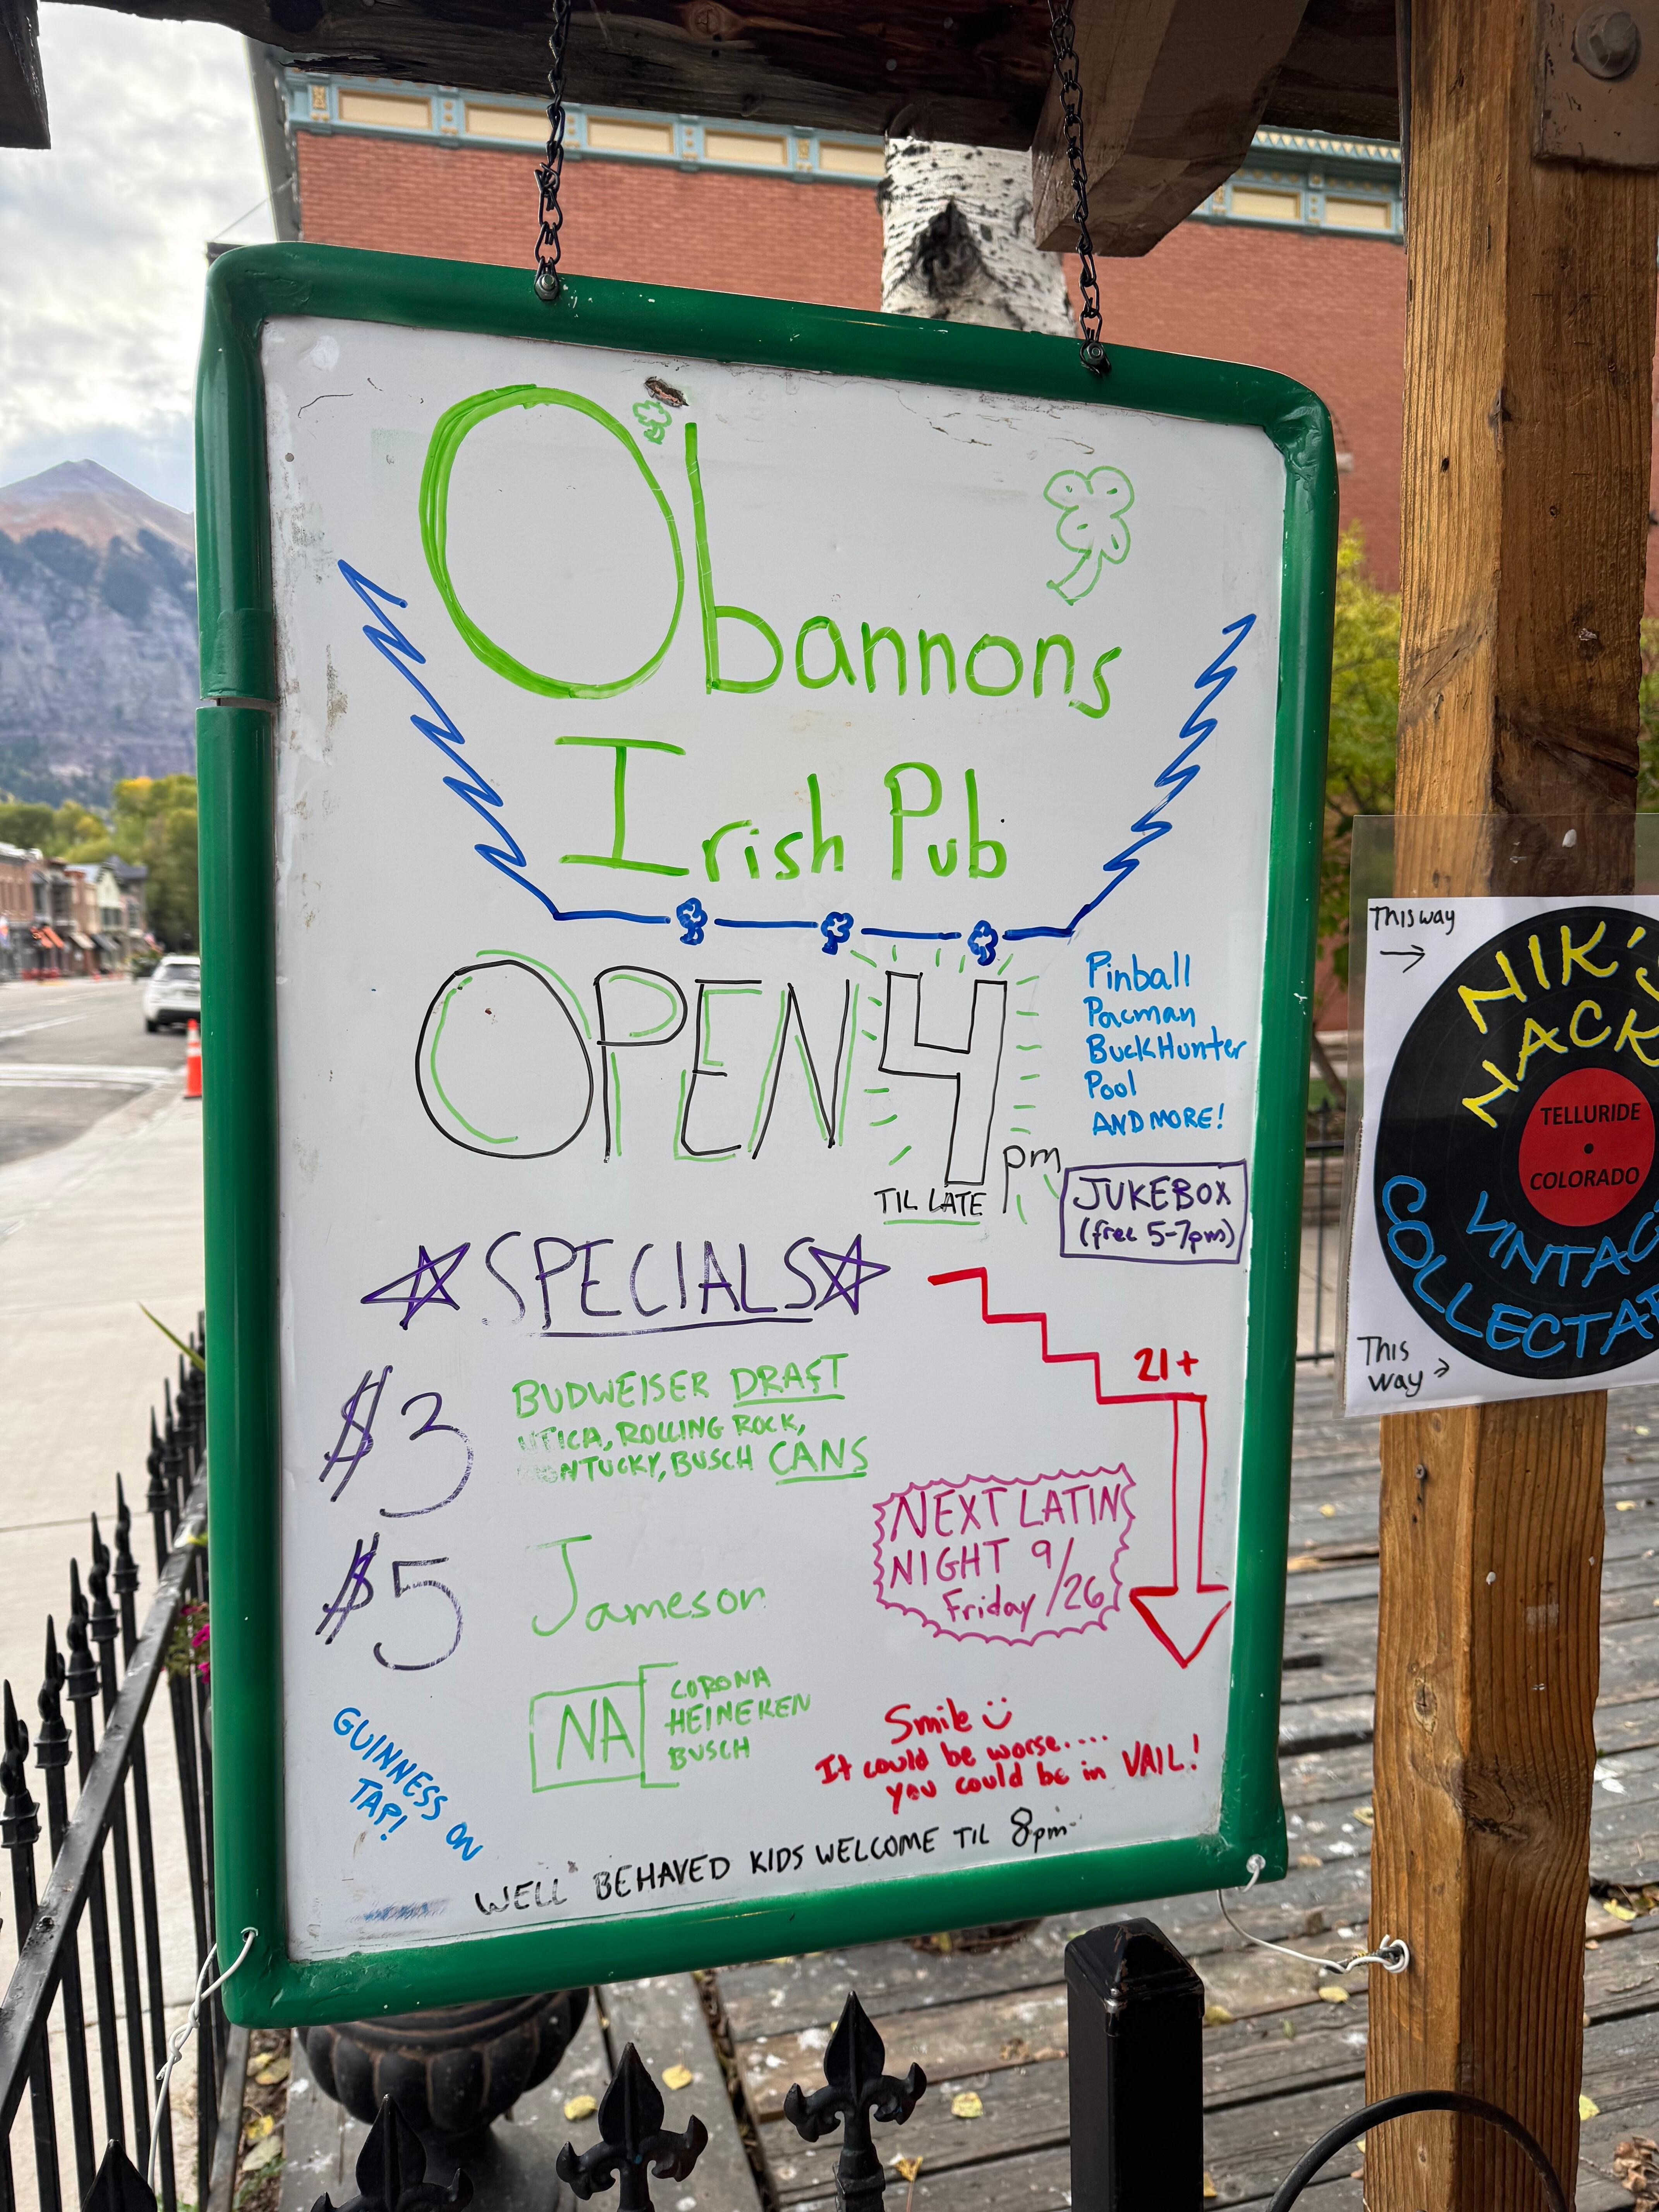 Obannons
Irish Pub
OPEN 4
pm
TIL LATE
Pinball
Pacman
BuckHunter
Pool
AND MORE!
JUKEBOX
(free 5-7pm)
SPECIALS
$3
BUDWEISER DRAFT
UTICA, ROLLING ROCK,
KENTUCKY, BUSCH CANS
21+
$5
Jameson
NEXT LATIN
NIGHT 9/26
Friday
NA
CORONA
HEINEKEN
BUSCH
GUINNESS ON
TAP!
Smile
It could be worse....
you could be in VAIL!
WELL BEHAVED KIDS WELCOME TIL 8pm
This way
NIK'S
NACK
TELLURIDE
COLORADO
VINTAG
COLLECTA
This
way